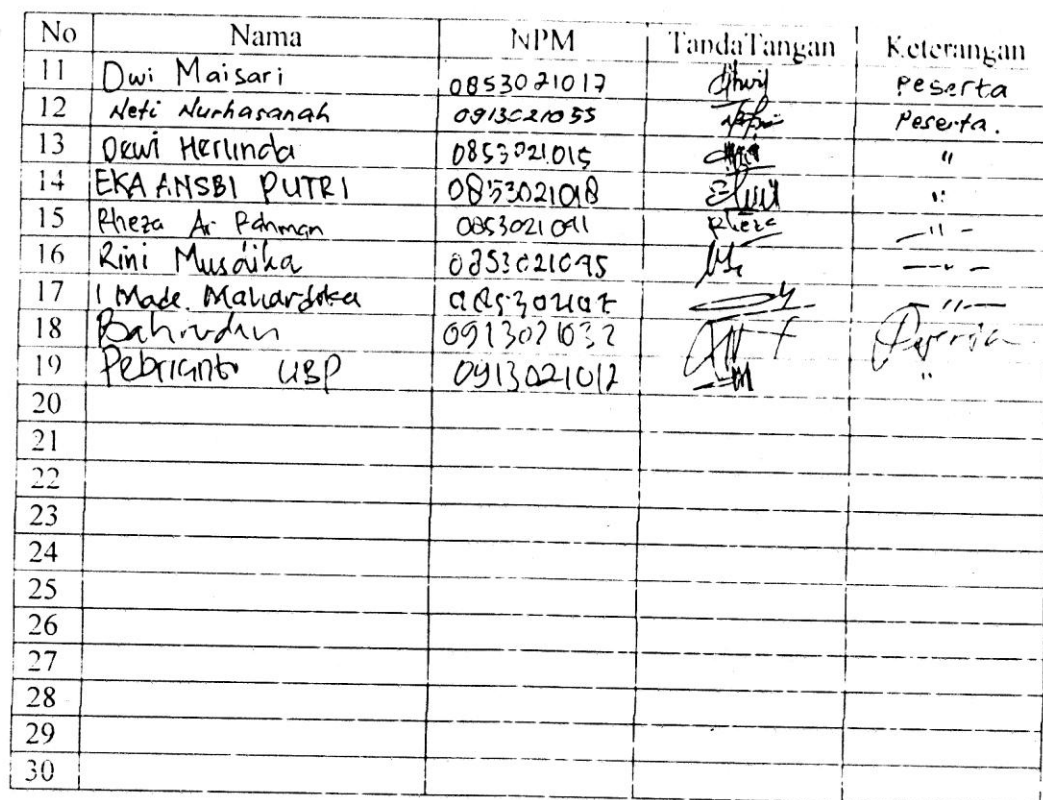 No Nama NPM TandaTangan Keterangan
11 Dwi Maisari 0853021017 Peserta
12 Neti Nurhasanah 0913021055 Peserta.
13 Dewi Herlinda 0853021015 "
14 EKA ANSBI PUTRI 0853021018 "
15 Rheza Ar Rahman 0853021041 Rheza - " -
16 Rini Musdika 0853021045 - " -
17 I Made Mahardika - " -
18 Bahrudin 0913021032 Peserta
19 Pebrianto UBP 0913021012 "
20
21
22
23
24
25
26
27
28
29
30